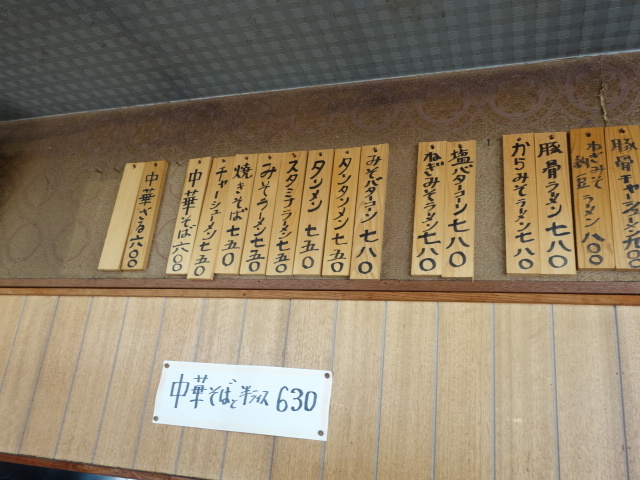 豚骨チャーシューメン
ねぎみそ納豆ラーメン 八〇〇
豚骨ラーメン 七八〇
からみそラーメン 七八〇
塩バターコーン 七八〇
ねぎみそラーメン 七八〇
みそバターコーン 七八〇
タンタンメン 七五〇
タンメン 七五〇
スタミナラーメン 七五〇
みそラーメン 七五〇
焼きそば 七五〇
チャーシューメン 七五〇
中華そば 六〇〇
中華ざる 六〇〇
中華そばと半ライス 630